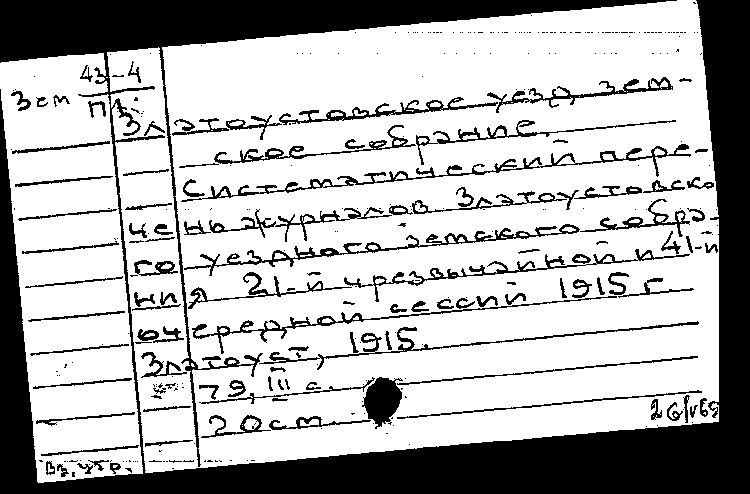 Зем 43-4
П1.
Златоустовское уезд. зем-
ское собрание.
Систематический пере-
чень журналов Златоустовско
го уездного земского собра-
ния 21-й чрезвычайной и 41-й
очередной сессий 1915 г
Златоуст, 1915.
79, III с.
20см.